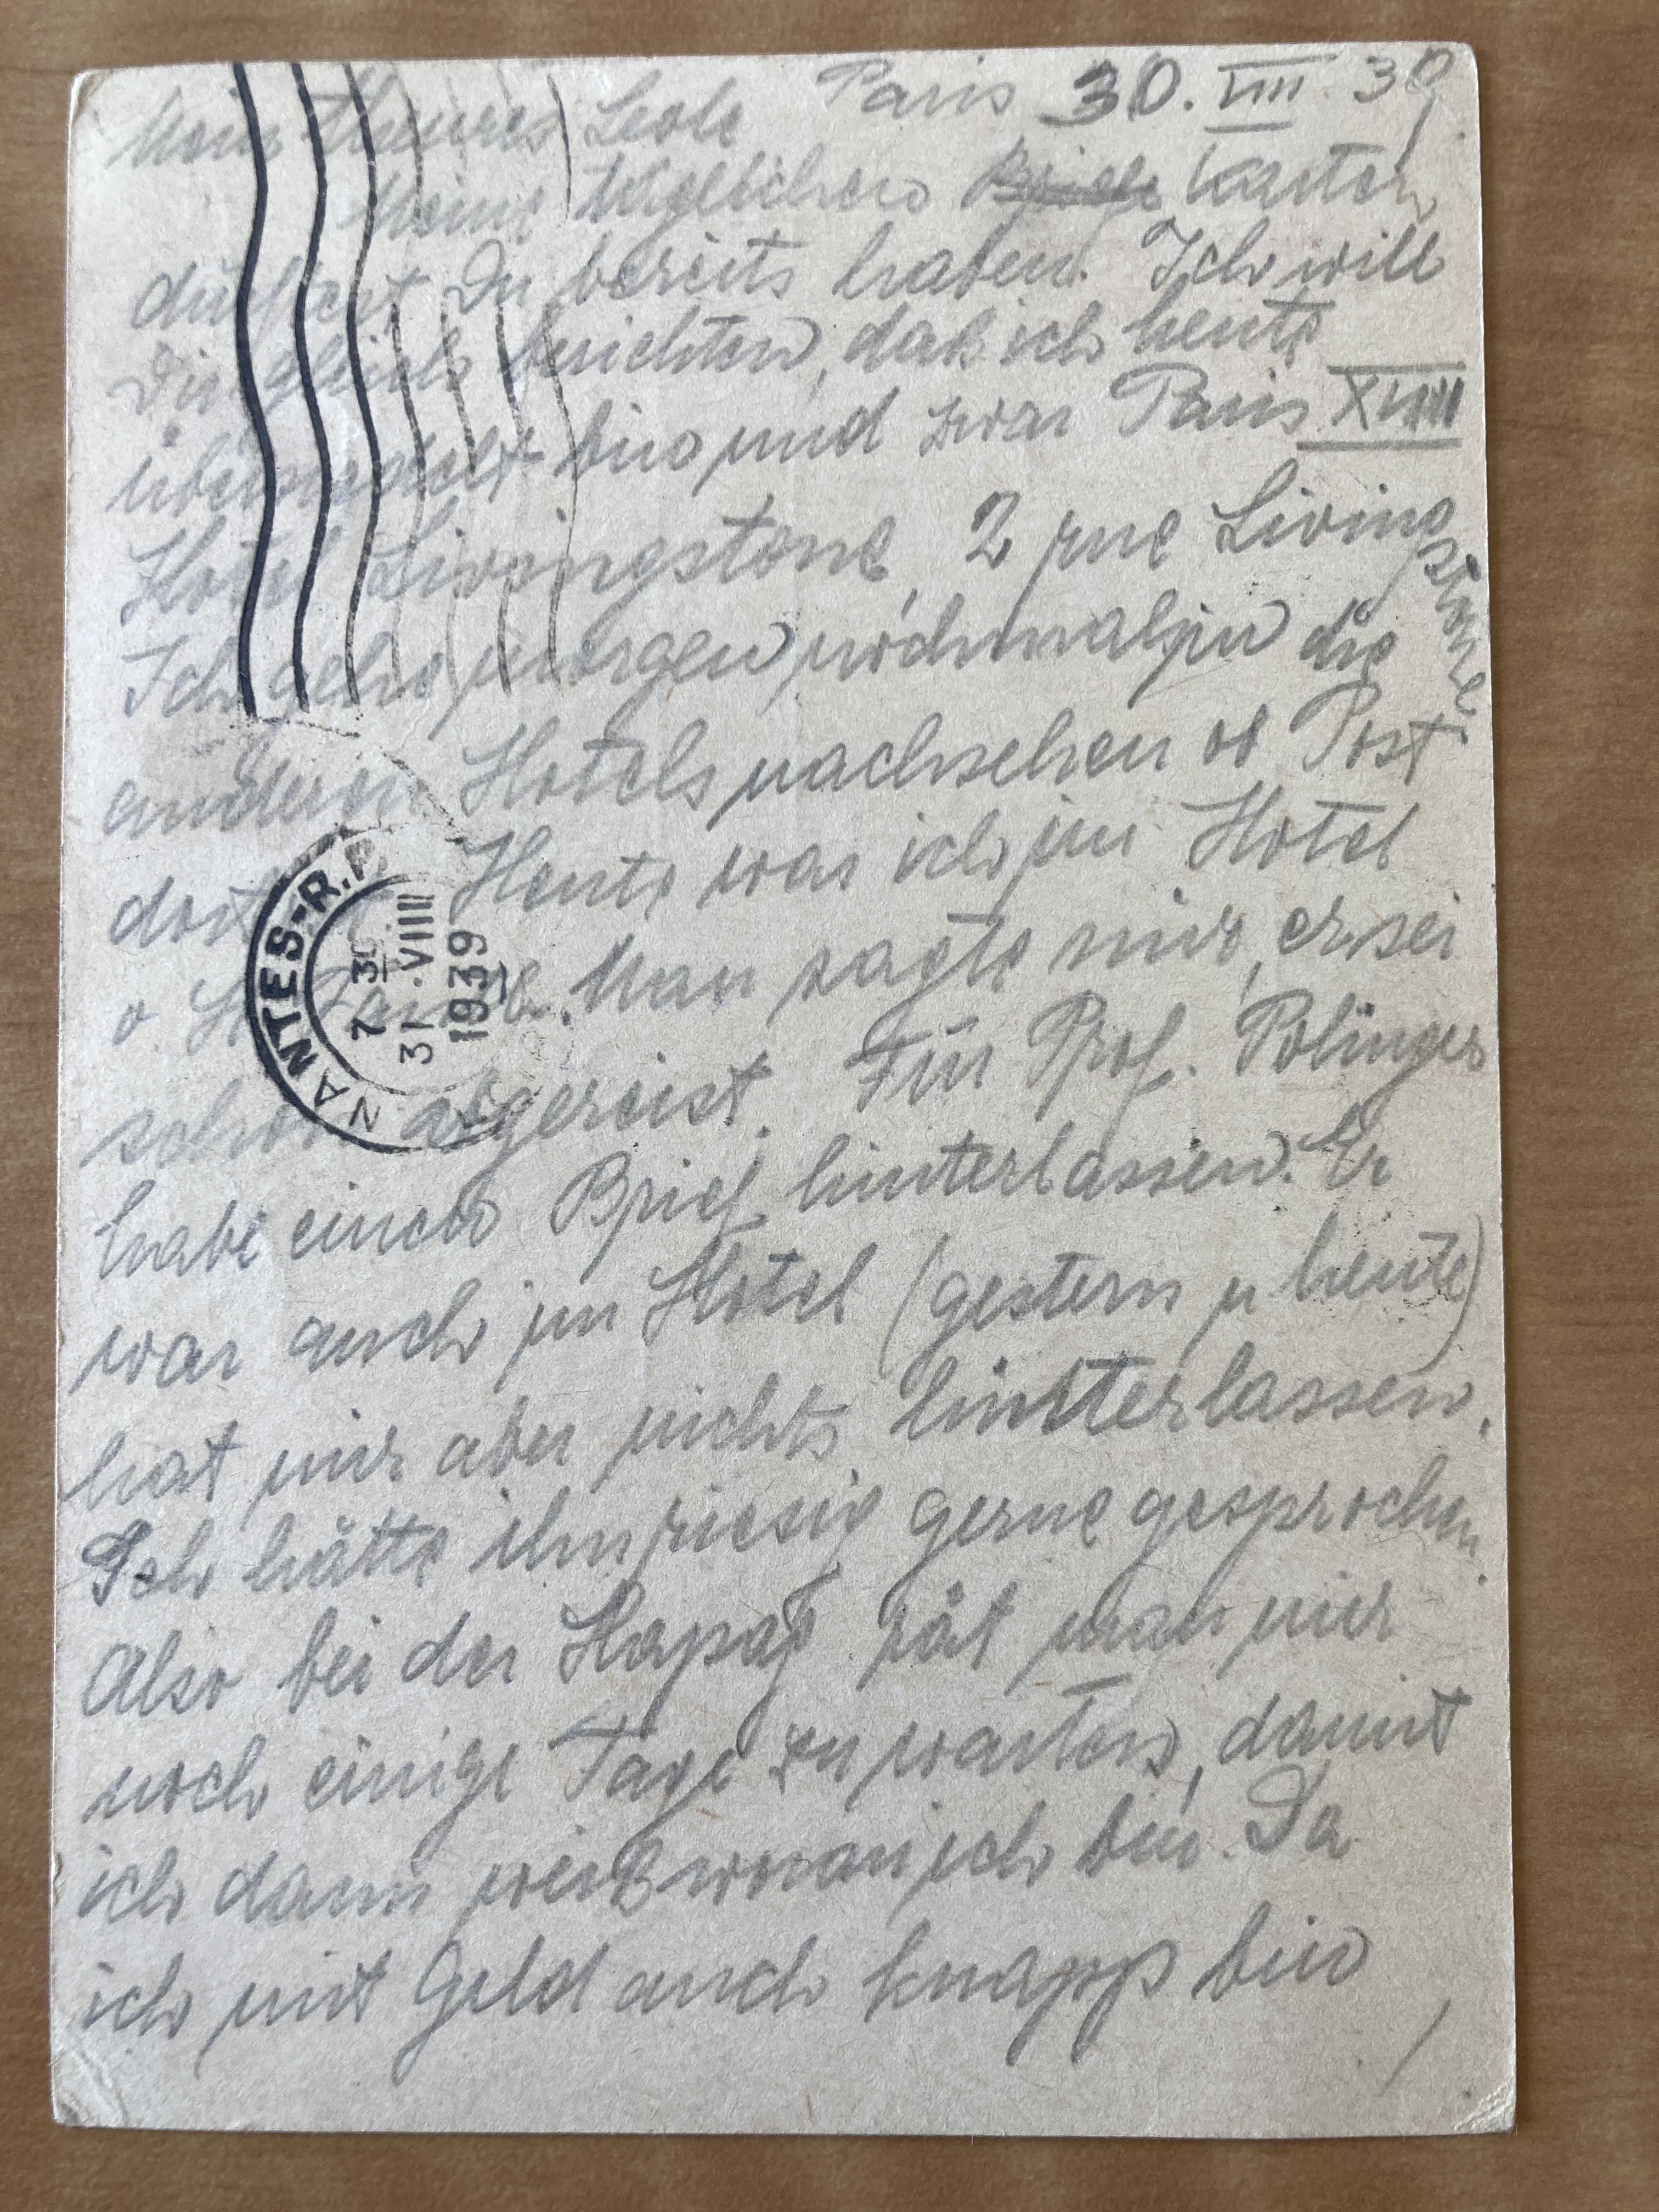 Paris 30. VIII. 39
Mein theures Liole
Meine täglichen Briefe Karten
dürftest Du bereits haben. Ich will
Dir gleich berichten, daß ich heute
übersiedelt bin und zwar Paris XVIII
Hotel Livingstone, 2 rue Livingstone
Ich gehe morgen nochmals in die
anderen Hotels nachsehen ob Post
dort ist. Heute war ich im Hotel
v. H. Man sagte mir, er sei
schon abgereist. Für Prof. Polinger
habe einen Brief hinterlassen. Er
war auch im Hotel (gestern u heute)
hat mir aber nichts hinterlassen.
Ich hätte ihn riesig gerne gesprochen.
Also bei der Hapag rät man mir
noch einige Tage zu warten, damit
ich dann weiß woran ich bin. Da
ich mit Geld auch knapp bin,
NANTES-R.P.
7 30
31 · VIII
1939